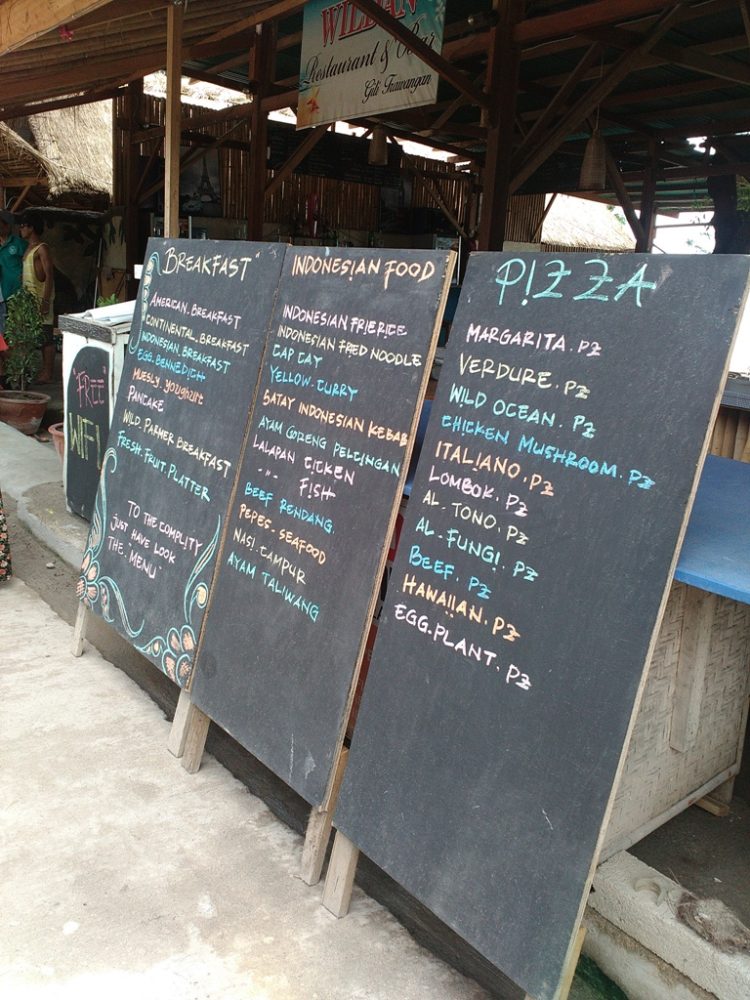 WILLIAN
Restaurant & Bar
Gili Trawangan
"BREAKFAST"
AMERICAN.BREAKFAST
CONTINENTAL.BREAKFAST
INDONESIAN.BREAKFAST
EGG.BENNEDICH
MUESLY.YOUGHURT
PANCAKE
WILD.PARMER BREAKFAST
FRESH.FRUIT.PLATTER
TO THE COMPLITY
JUST HAVE LOOK
THE "MENU"
INDONESIAN FOOD
INDONESIAN FRIERICE
INDONESIAN FRED NOODLE
CAP CAY
YELLOW.CURRY
SATAY INDONESIAN KEBAB
AYAM GORENG PELCINGAN
LALAPAN CICKEN
-"- FISH
BEEF RENDANG.
PEPES.SEAFOOD
NASI.CAMPUR
AYAM TALIWANG
PIZZA
MARGARITA.PZ
VERDURE.PZ
WILD OCEAN.PZ
CHICKEN MUSHROOM.PZ
ITALIANO.PZ
LOMBOK.PZ
AL.TONO.PZ
AL.FUNGI.PZ
BEEF.PZ
HAWAIIAN.PZ
EGG.PLANT.PZ
"FREE"
WIFI